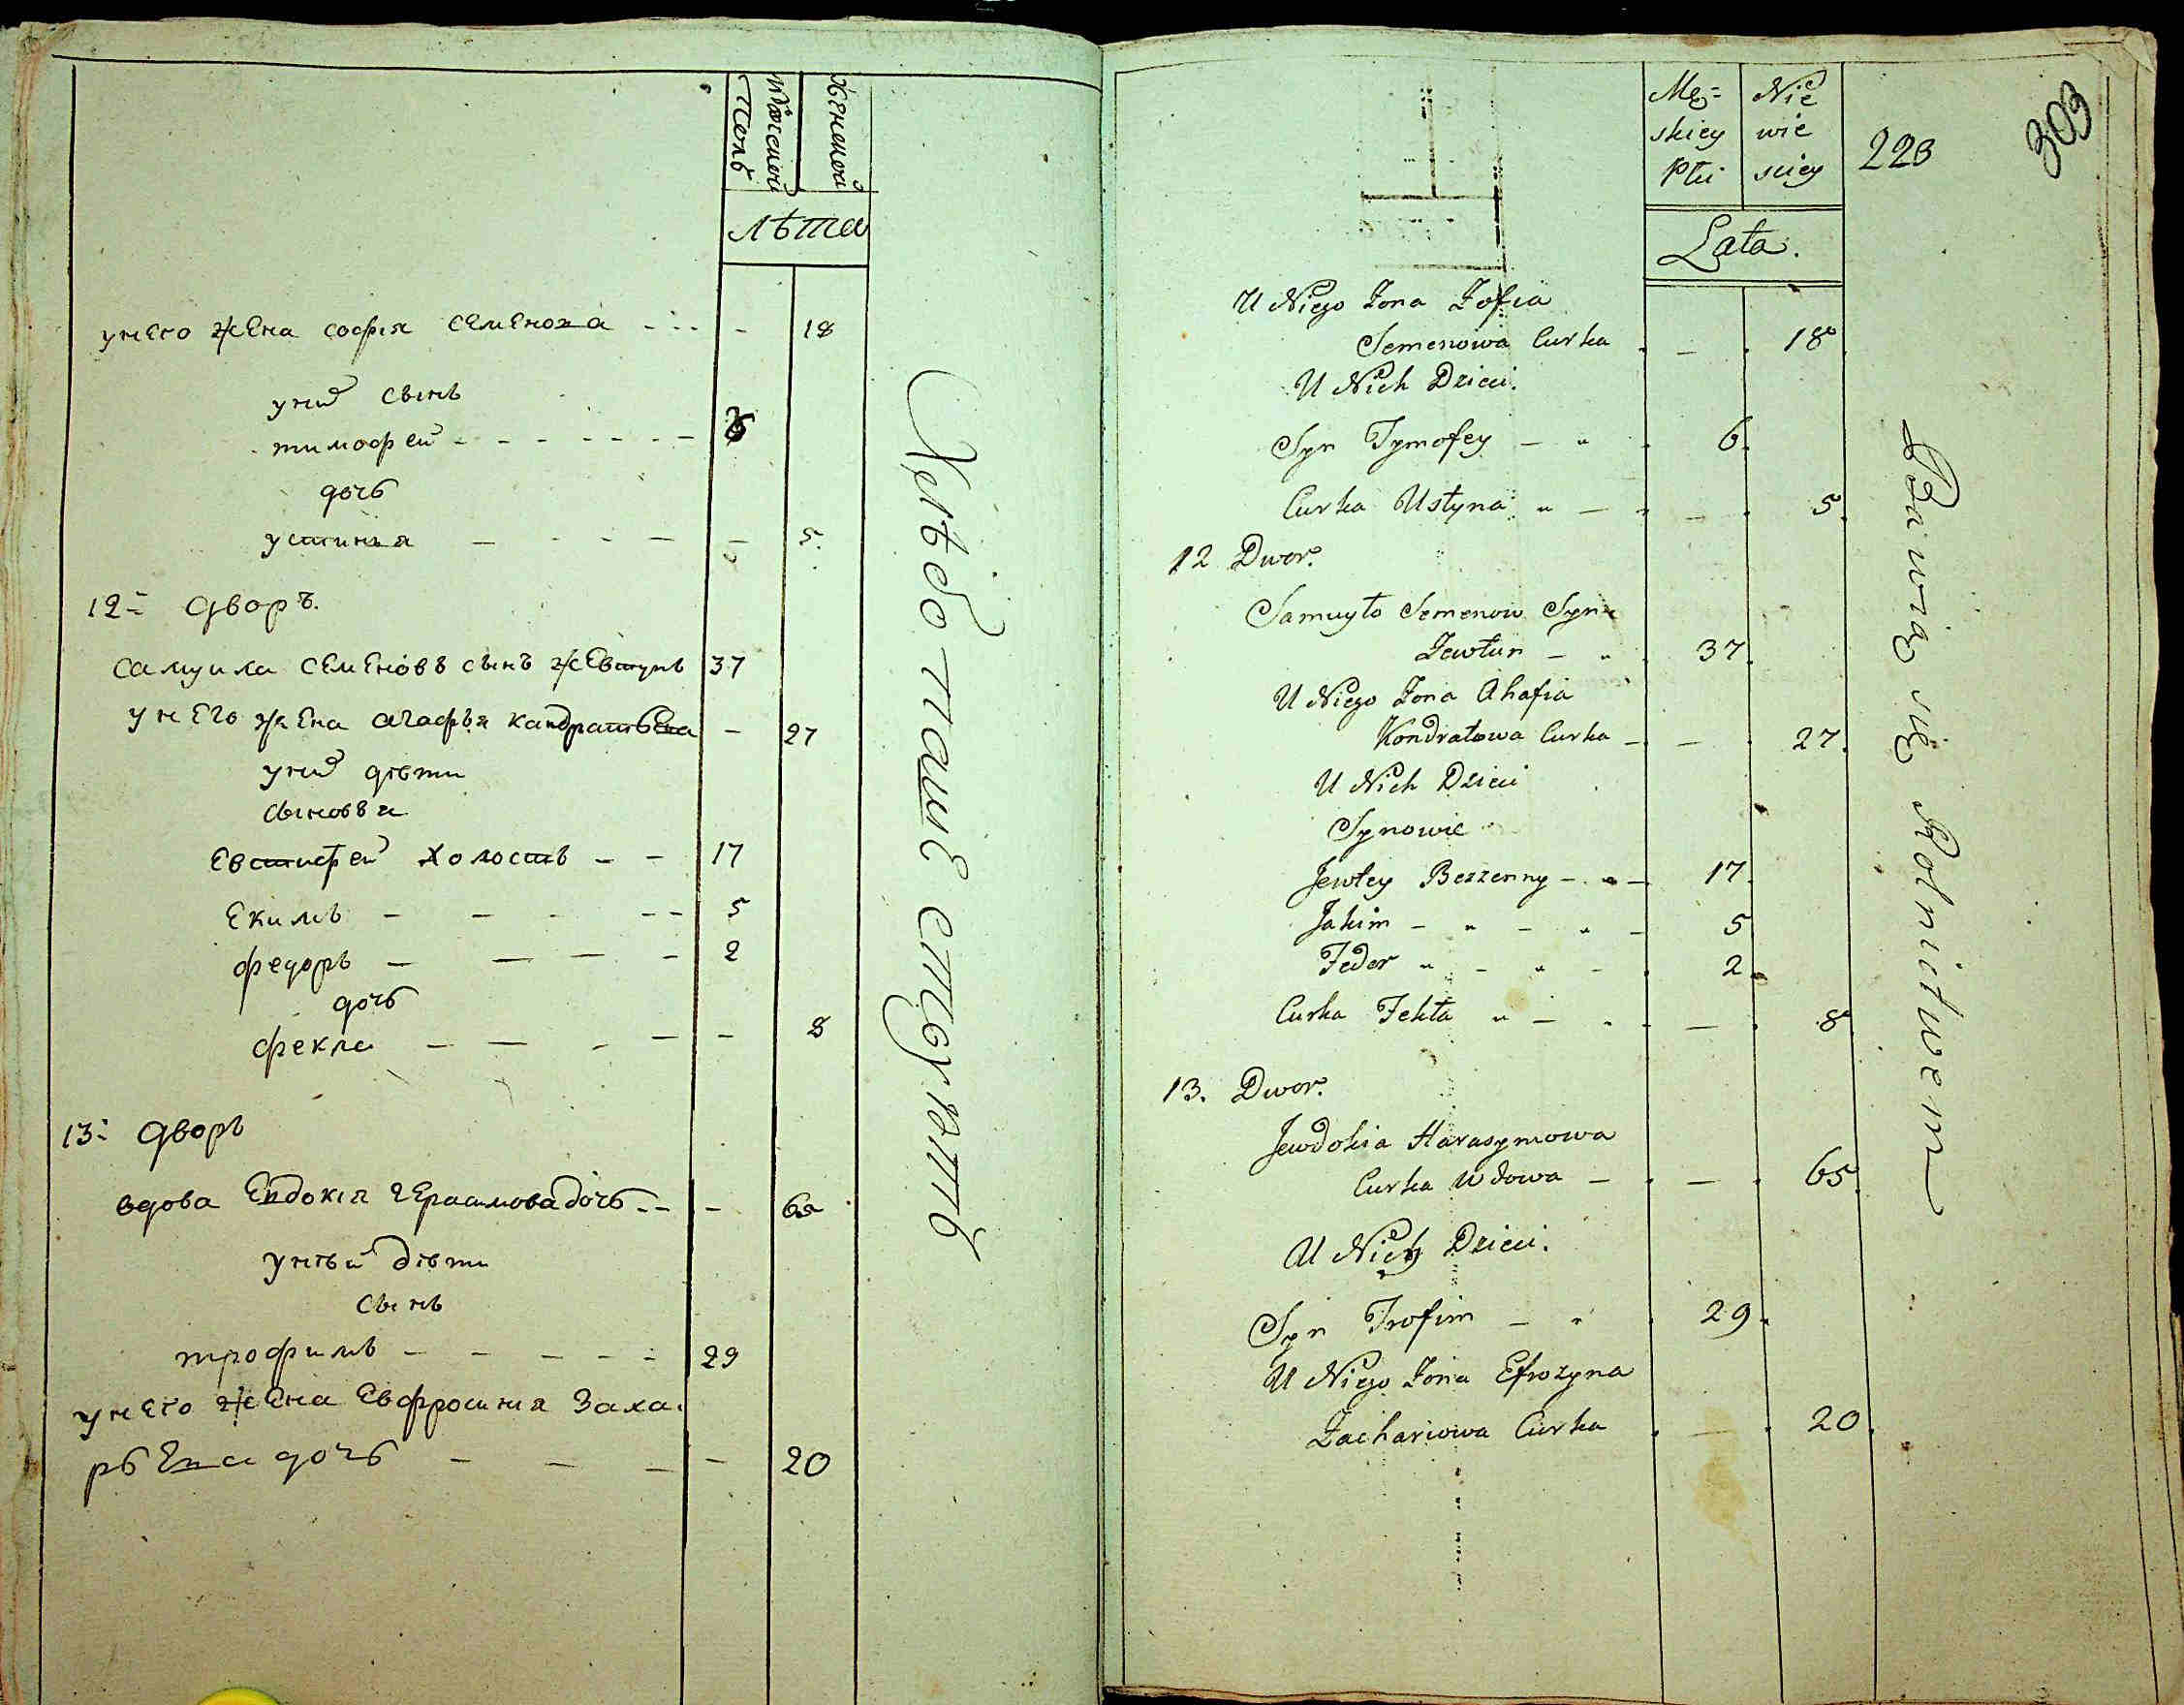 Полъ
мужеской
женской
лѣта
у него жена софія семенова - - - - 18
у ниⷯ сынъ
тимофей - - - - - - - 6
дочь
устинья - - - - - 5.
12й дворъ.
самуила семеновъ сынъ жевтунъ 37
у него жена агафья кандратьева - 27
у ниⷯ дѣти
сыновья
Евстифей холостъ - - 17
Екимъ - - - - - 5
федоръ - - - - 2
дочь
фекла - - - - - 8
13й дворъ
вдова Евдокія герасимова дочь - - - 65
у нѣй дѣти
сынъ
трофимъ - - - - - 29
у него жена Евфросинія Заха-
рьева дочь - - - - 20
Хлѣбопашествуютъ
Mę= Nie
skiey wie
Płci sciey
223
303
Lata.
U Niego Żona Zofia
Semenowa Curka . — . 18
U Nich Dzieci.
Syn Tymofey — „ . 6.
Curka Ustyna „ — . — . 5.
12 Dwor.
Samuyło Semenow Syn
Żewtun — „ . 37.
U Niego Żona Ahafia
Kondratowa Curka — . — . 27.
U Nich Dzieci
Synowie
Jewtey Bezzenny — „ — 17.
Jakim — „ — „ — 5
Fedor „ — „ — . 2.
Curka Fekła „ — „ . — . 8
13. Dwor.
Jewdokia Harasymowa
Curka Wdowa — . — . 65.
U Niey Dzieci.
Syn Trofim — „ . 29.
U Niego Żona Efrozyna
Zachariowa Curka . — . 20.
Bawią się Rolnictwem